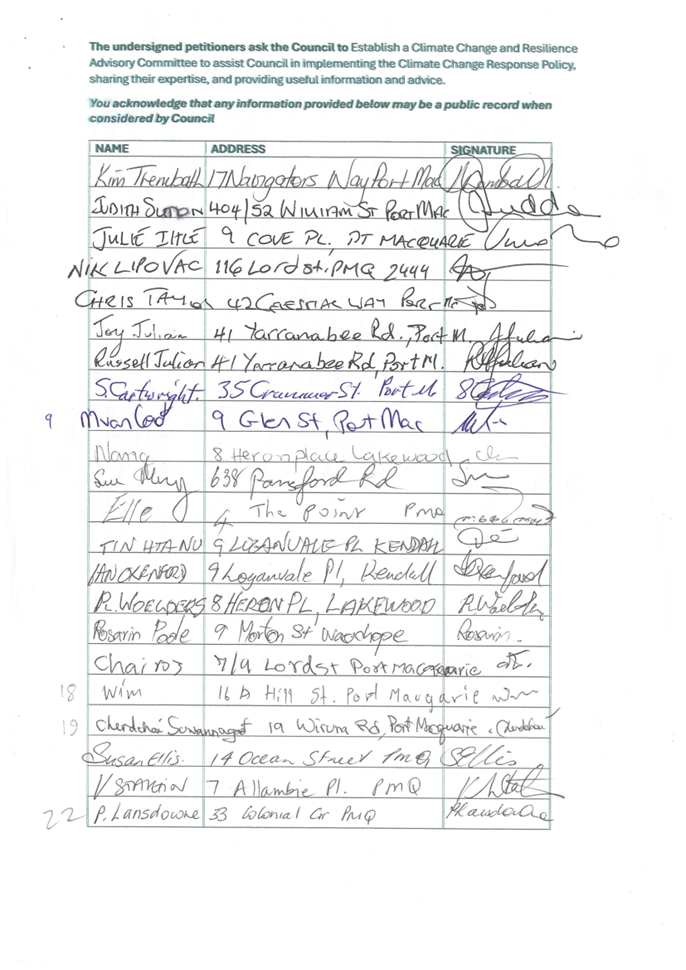 The undersigned petitioners ask the Council to Establish a Climate Change and Resilience
Advisory Committee to assist Council in implementing the Climate Change Response Policy,
sharing their expertise, and providing useful information and advice.
You acknowledge that any information provided below may be a public record when
considered by Council
NAME ADDRESS SIGNATURE
Kim Trembath 17 Navigators Way Port Mac
JUDITH 404/52 WILLIAM ST PORT MAC Judda
JULIE 9 COVE PL, PT MACQUARIE
NIK LIPOVAC 116 Lord st. PMQ 2444
CHRIS TAYLOR 42 CELESTIAL WAY PORT
Joy Julian 41 Yarranabee Rd., Port M. JJulian
Russell Julian 41 Yarranabee Rd, Port M. RJulian
S. Cartwright. 35 Crammer St. Port M
9 9 Glen St, Port Mac
8 Heron place Lakewood
Sue 638 Rd
Elle 4 The Point PMQ
TIN HTA NU 9 LOGANVALE PL KENDALL
IAN OXENFORD 9 Loganvale Pl, Kendall Oxenford
R. WOELDERS 8 HERON PL, LAKEWOOD R.Woelders
Rosarin Poole 9 Morton St Wauchope Rosarin
Chairoj 7/9 Lord st Port Macquarie
18 Wim 16 A Hill St. Port Mauqarie Wim
19 Cherdchai Suwannagat 19 Wiruna Rd, Port Macquarie Cherdchai
Susan Ellis. 14 Ocean Street PMQ SEllis
7 Allambie Pl. PMQ
22 P. Lansdowne 33 Colonial Cir PMQ